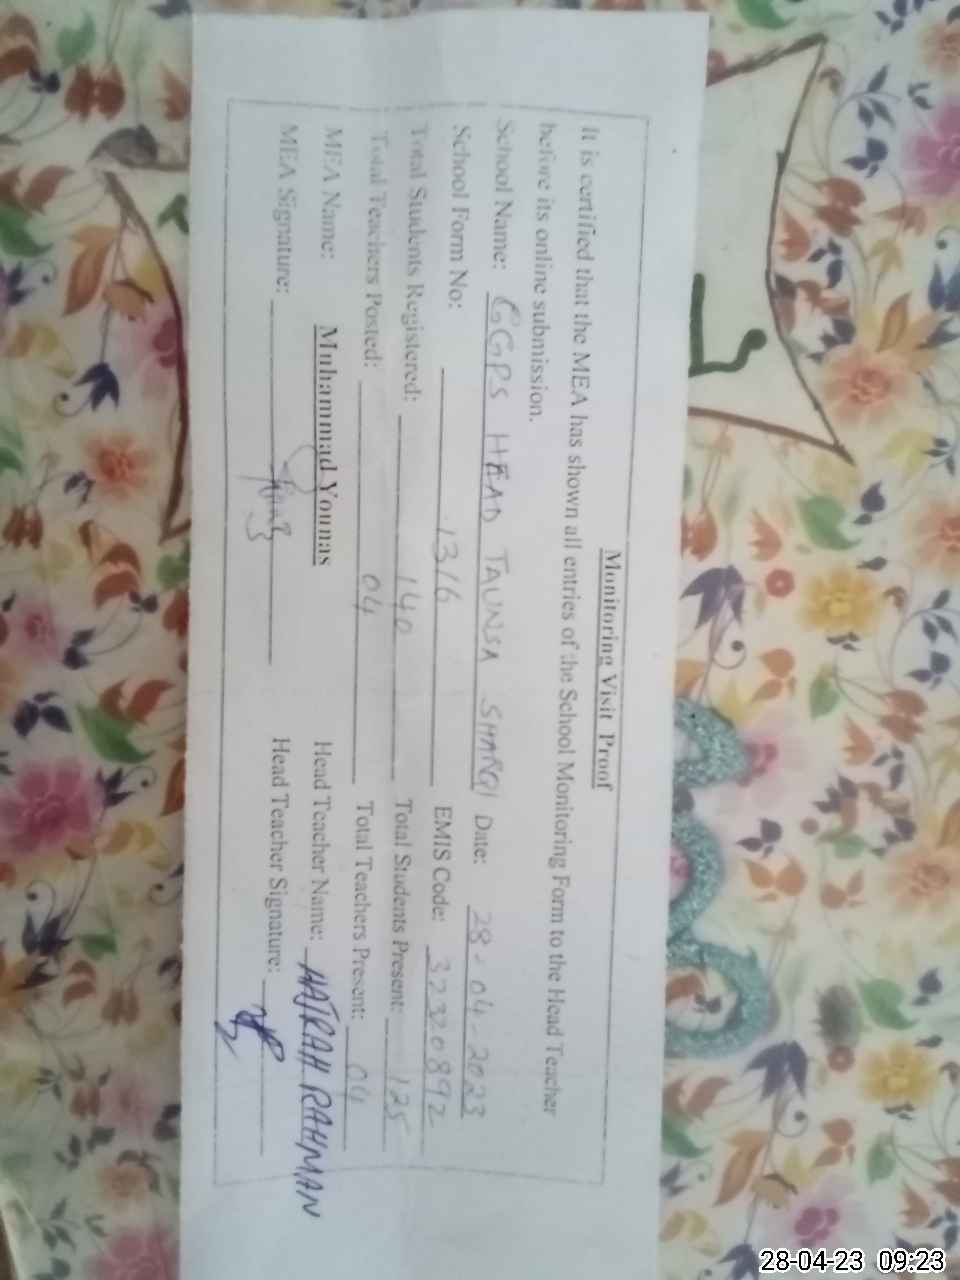 Monitoring Visit Proof
It is certified that the MEA has shown all entries of the School Monitoring Form to the Head Teacher
before its online submission.
School Name: GGPS HEAD TAUNSA SHARQI Date: 28-04-2023
School Form No: 1316 EMIS Code: 32320892
Total Students Registered: 140 Total Students Present: 125
Total Teachers Posted: 04 Total Teachers Present: 04
MEA Name: Muhammad Younas Head Teacher Name: HAJRAH RAHMAN
MEA Signature: Head Teacher Signature:
28-04-23 09:23